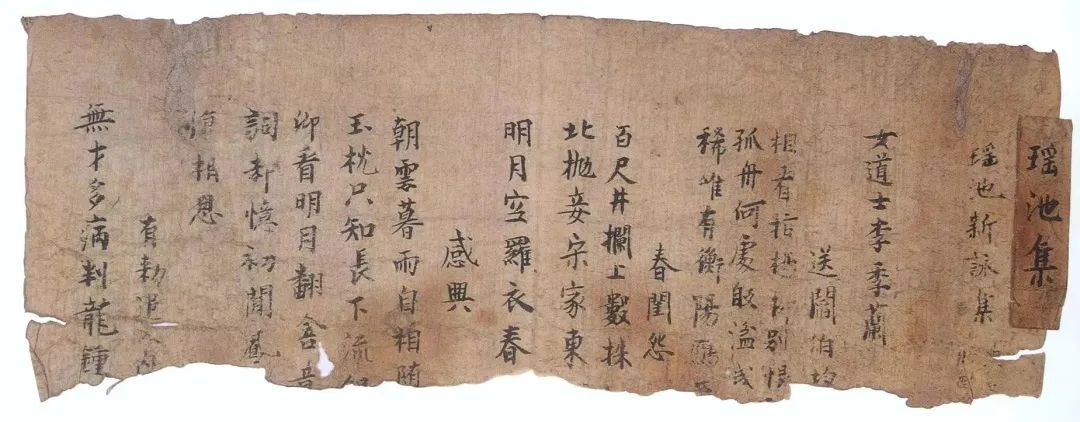 瑶池集
瑶池新詠集
女道士李季蘭
送閻伯均
相看指楊柳別恨
孤舟何處
稀唯有衡陽鴈
春閨怨
百尺井欄上數株
北抛妾宋家東
明月空羅衣春
感興
朝雲暮雨自相随
玉枕只知長下流
卿看明月翻含意
詞都憶初聞鳳
深相思
有勅追入内
無才多病判龍鍾